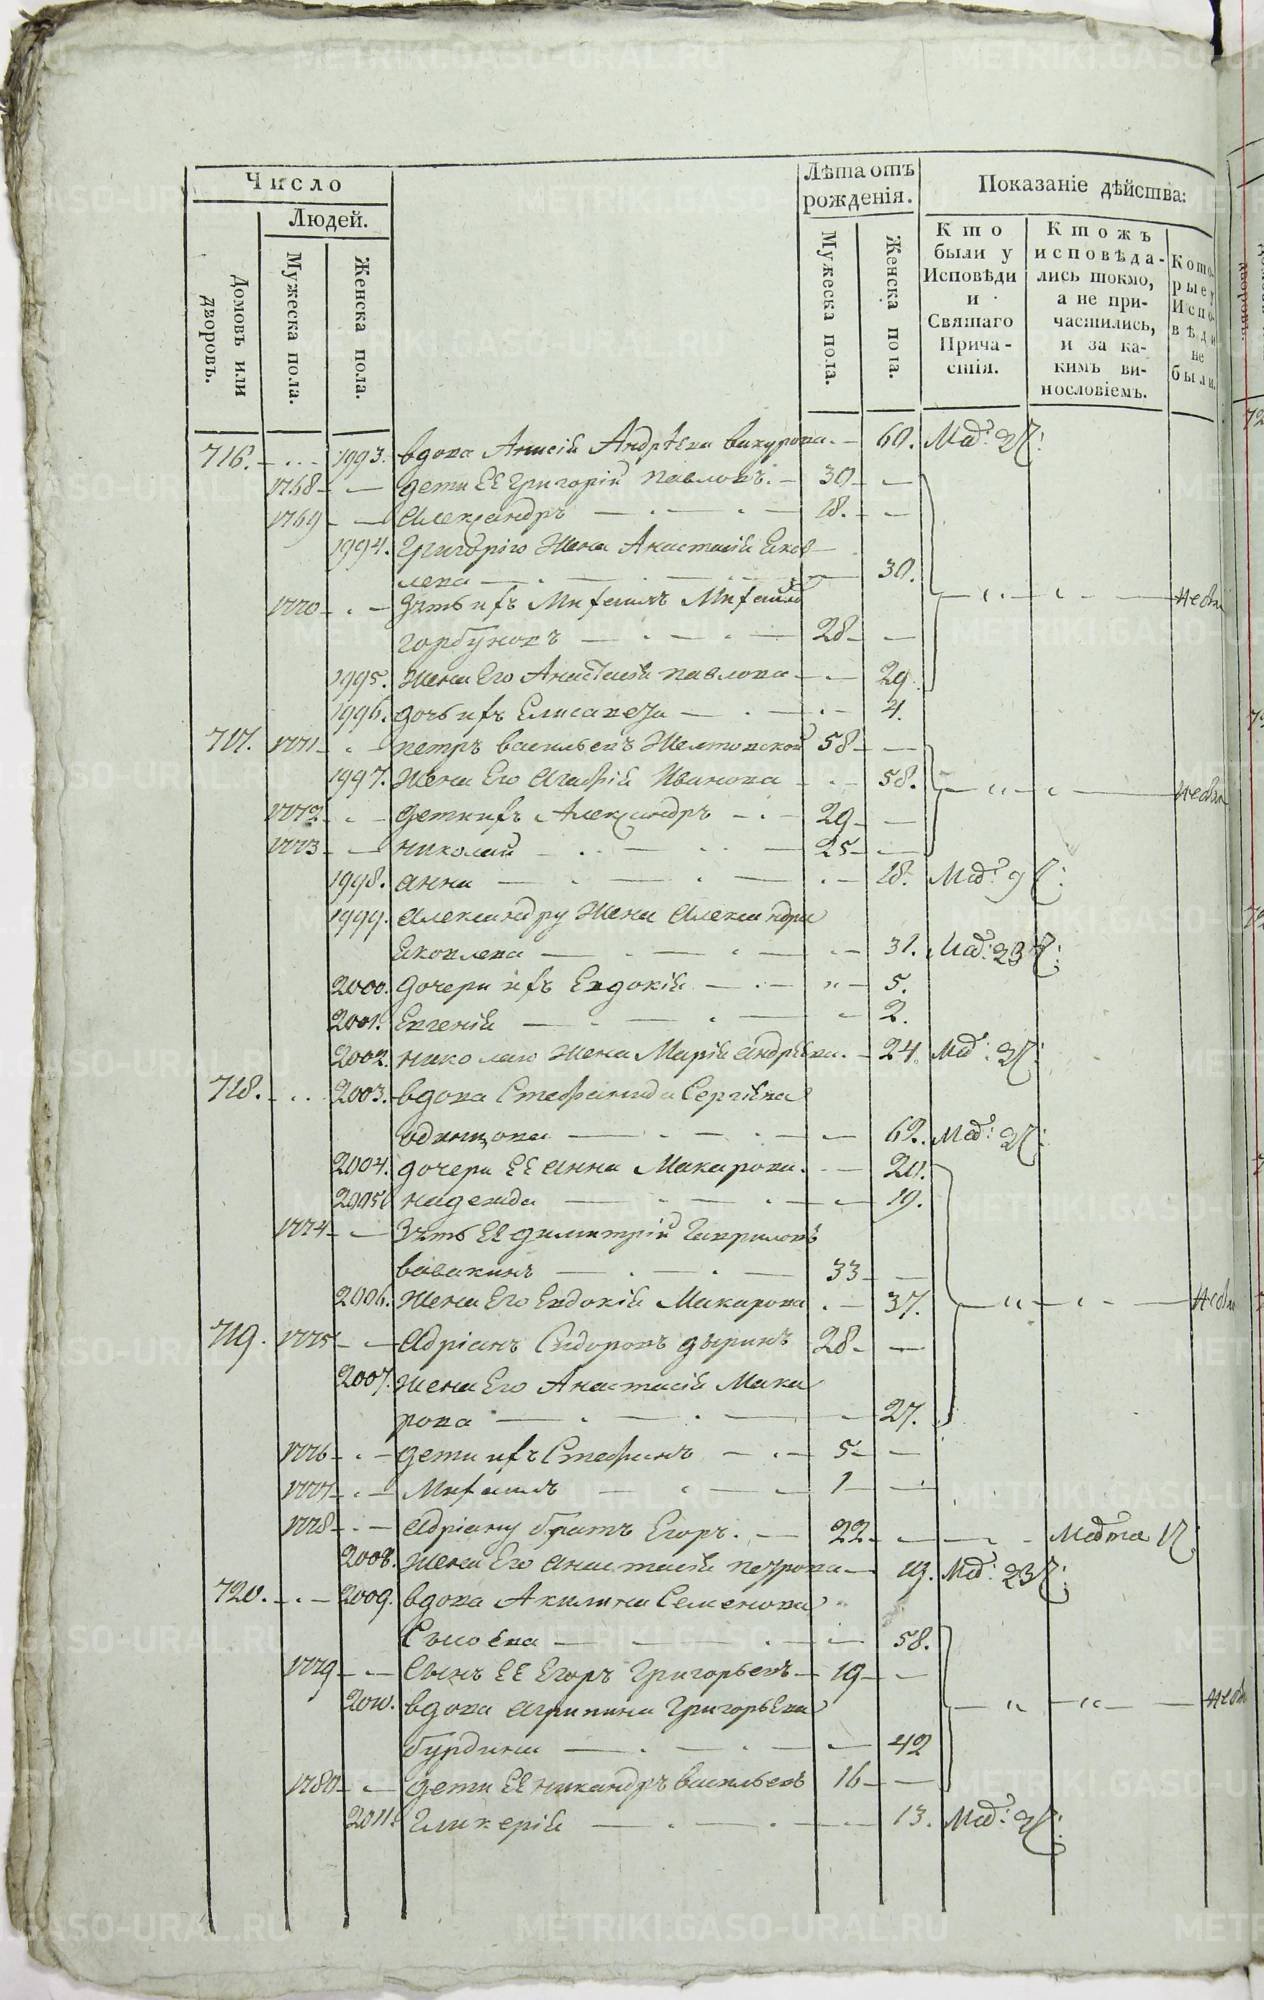 Число
Людей.
Домовъ или дворовъ.
Мужеска пола.
Женска пола.
Лѣта отъ рожденія.
Мужеска пола.
Женска пола.
Показаніе дѣйства:
Кто были у Исповѣди и Святаго Причастія.
Ктожъ исповѣдались токмо, а не причастились, и за какимъ винословіемъ.
Которые у Исповѣди не были.
716. 1993. вдова Анисій Андрѣева 60.
1768 дети ЕЕ Григорій Павловъ. 30
1769 Александръ 18.
1994. Григорію Жена Анастасій Яков
лева 30.
1770 Зять ихъ Михаилъ Михайло
горбуновъ 28
1995. Жена Его Анастасій Павлова 29
1996. дочь ихъ Елисавета 4.
717. 1771 петръ васильевъ 58
1997. Жена Его Агафій Иванова 58.
1772 дети ихъ Александръ 29
1773 николай 25
1998. анна 18.
1999. Александру Жена Александра
Яковлева 31.
2000. дочери ихъ Евдокій 5.
2001. Евгеній 2.
2002. николаю Жена Марій андрѣева. 24.
718. 2003. вдова Стефанида Сергѣева
одинцова 62.
2004. дочери ЕЕ анна Макарова. 20.
2005 надежда 19.
1774 Зять ЕЕ димитрій Гавриловъ
33
2006. Жена Его Евдокій Макарова 37.
719. 1775 Адріанъ Сидоровъ дыринъ 28
2007. Жена Его Анастасій Мака
рова 27.
1776 дети ихъ Стефанъ 5
1777 Михаилъ 1
1778 Адріану братъ Егоръ. 22
2008. Жена Его анастасій петрова 19.
720. 2009. вдова Акилина Семенова
58.
1779 Сынъ ЕЕ Егоръ Григорьевъ 19
2010. вдова агрипина Григорьева
бурдина 42
1780 дети ЕЕ никандръ васильевъ 16
2011. Гликерій 13.
METRIKI.GASO-URAL.RU